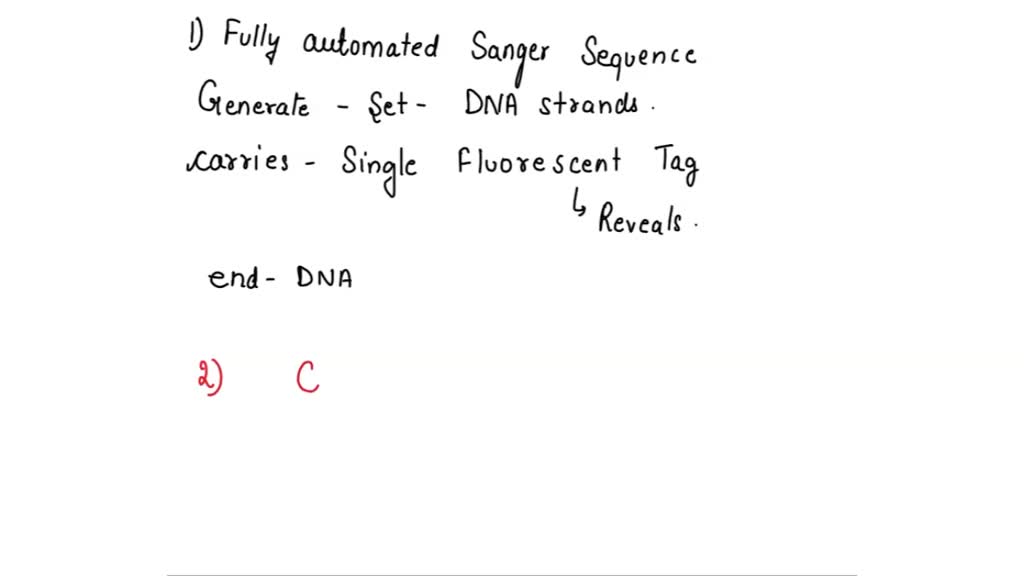 1) Fully automated Sanger Sequence
Generate - Set - DNA strands.
carries - Single Fluorescent Tag
↳ Reveals.
end - DNA
2) C